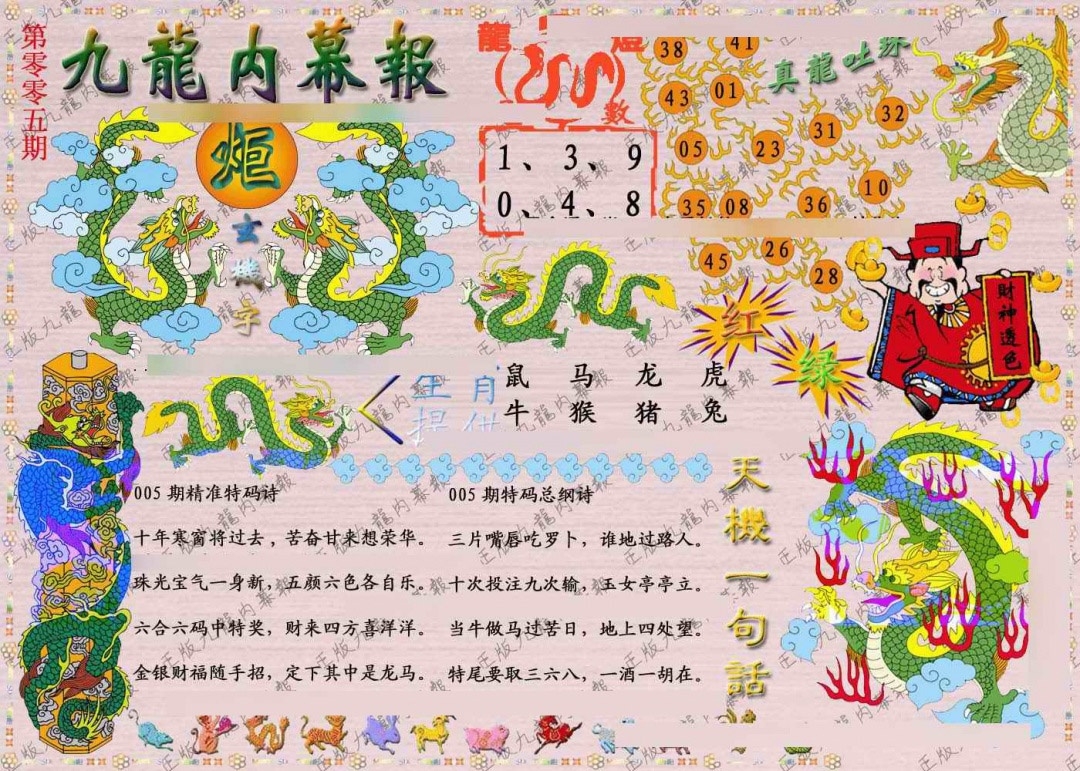 第零零五期
九龍内幕報
炬
玄機字
龍
燈
數
1、3、9
0、4、8
真龍吐珠
38 41
43 01
05 23 31 32
35 08 36 10
45 26 28
红
绿
財神透色
生肖
提供
鼠 马 龙 虎
牛 猴 猪 兔
005 期精准特码诗
十年寒窗将过去，苦奋甘来想荣华。
珠光宝气一身新，五颜六色各自乐。
六合六码中特奖，财来四方喜洋洋。
金银财福随手招，定下其中是龙马。
005 期特码总纲诗
三片嘴唇吃罗卜，谁地过路人。
十次投注九次输，玉女亭亭立。
当牛做马过苦日，地上四处望。
特尾要取三六八，一酒一胡在。
天機一句話
正版九龍内幕報